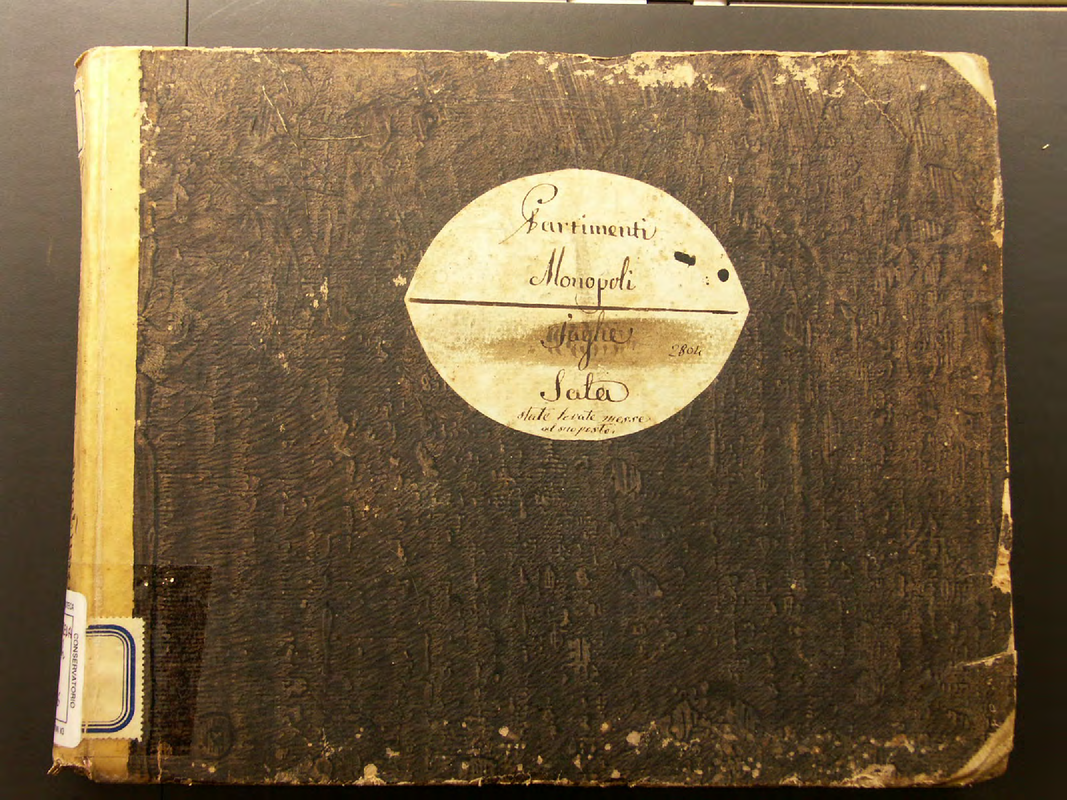 Partimenti
Monopoli
Fughe
2801
Sala
state levate messe
al suo posto.
CONSERVATORIO